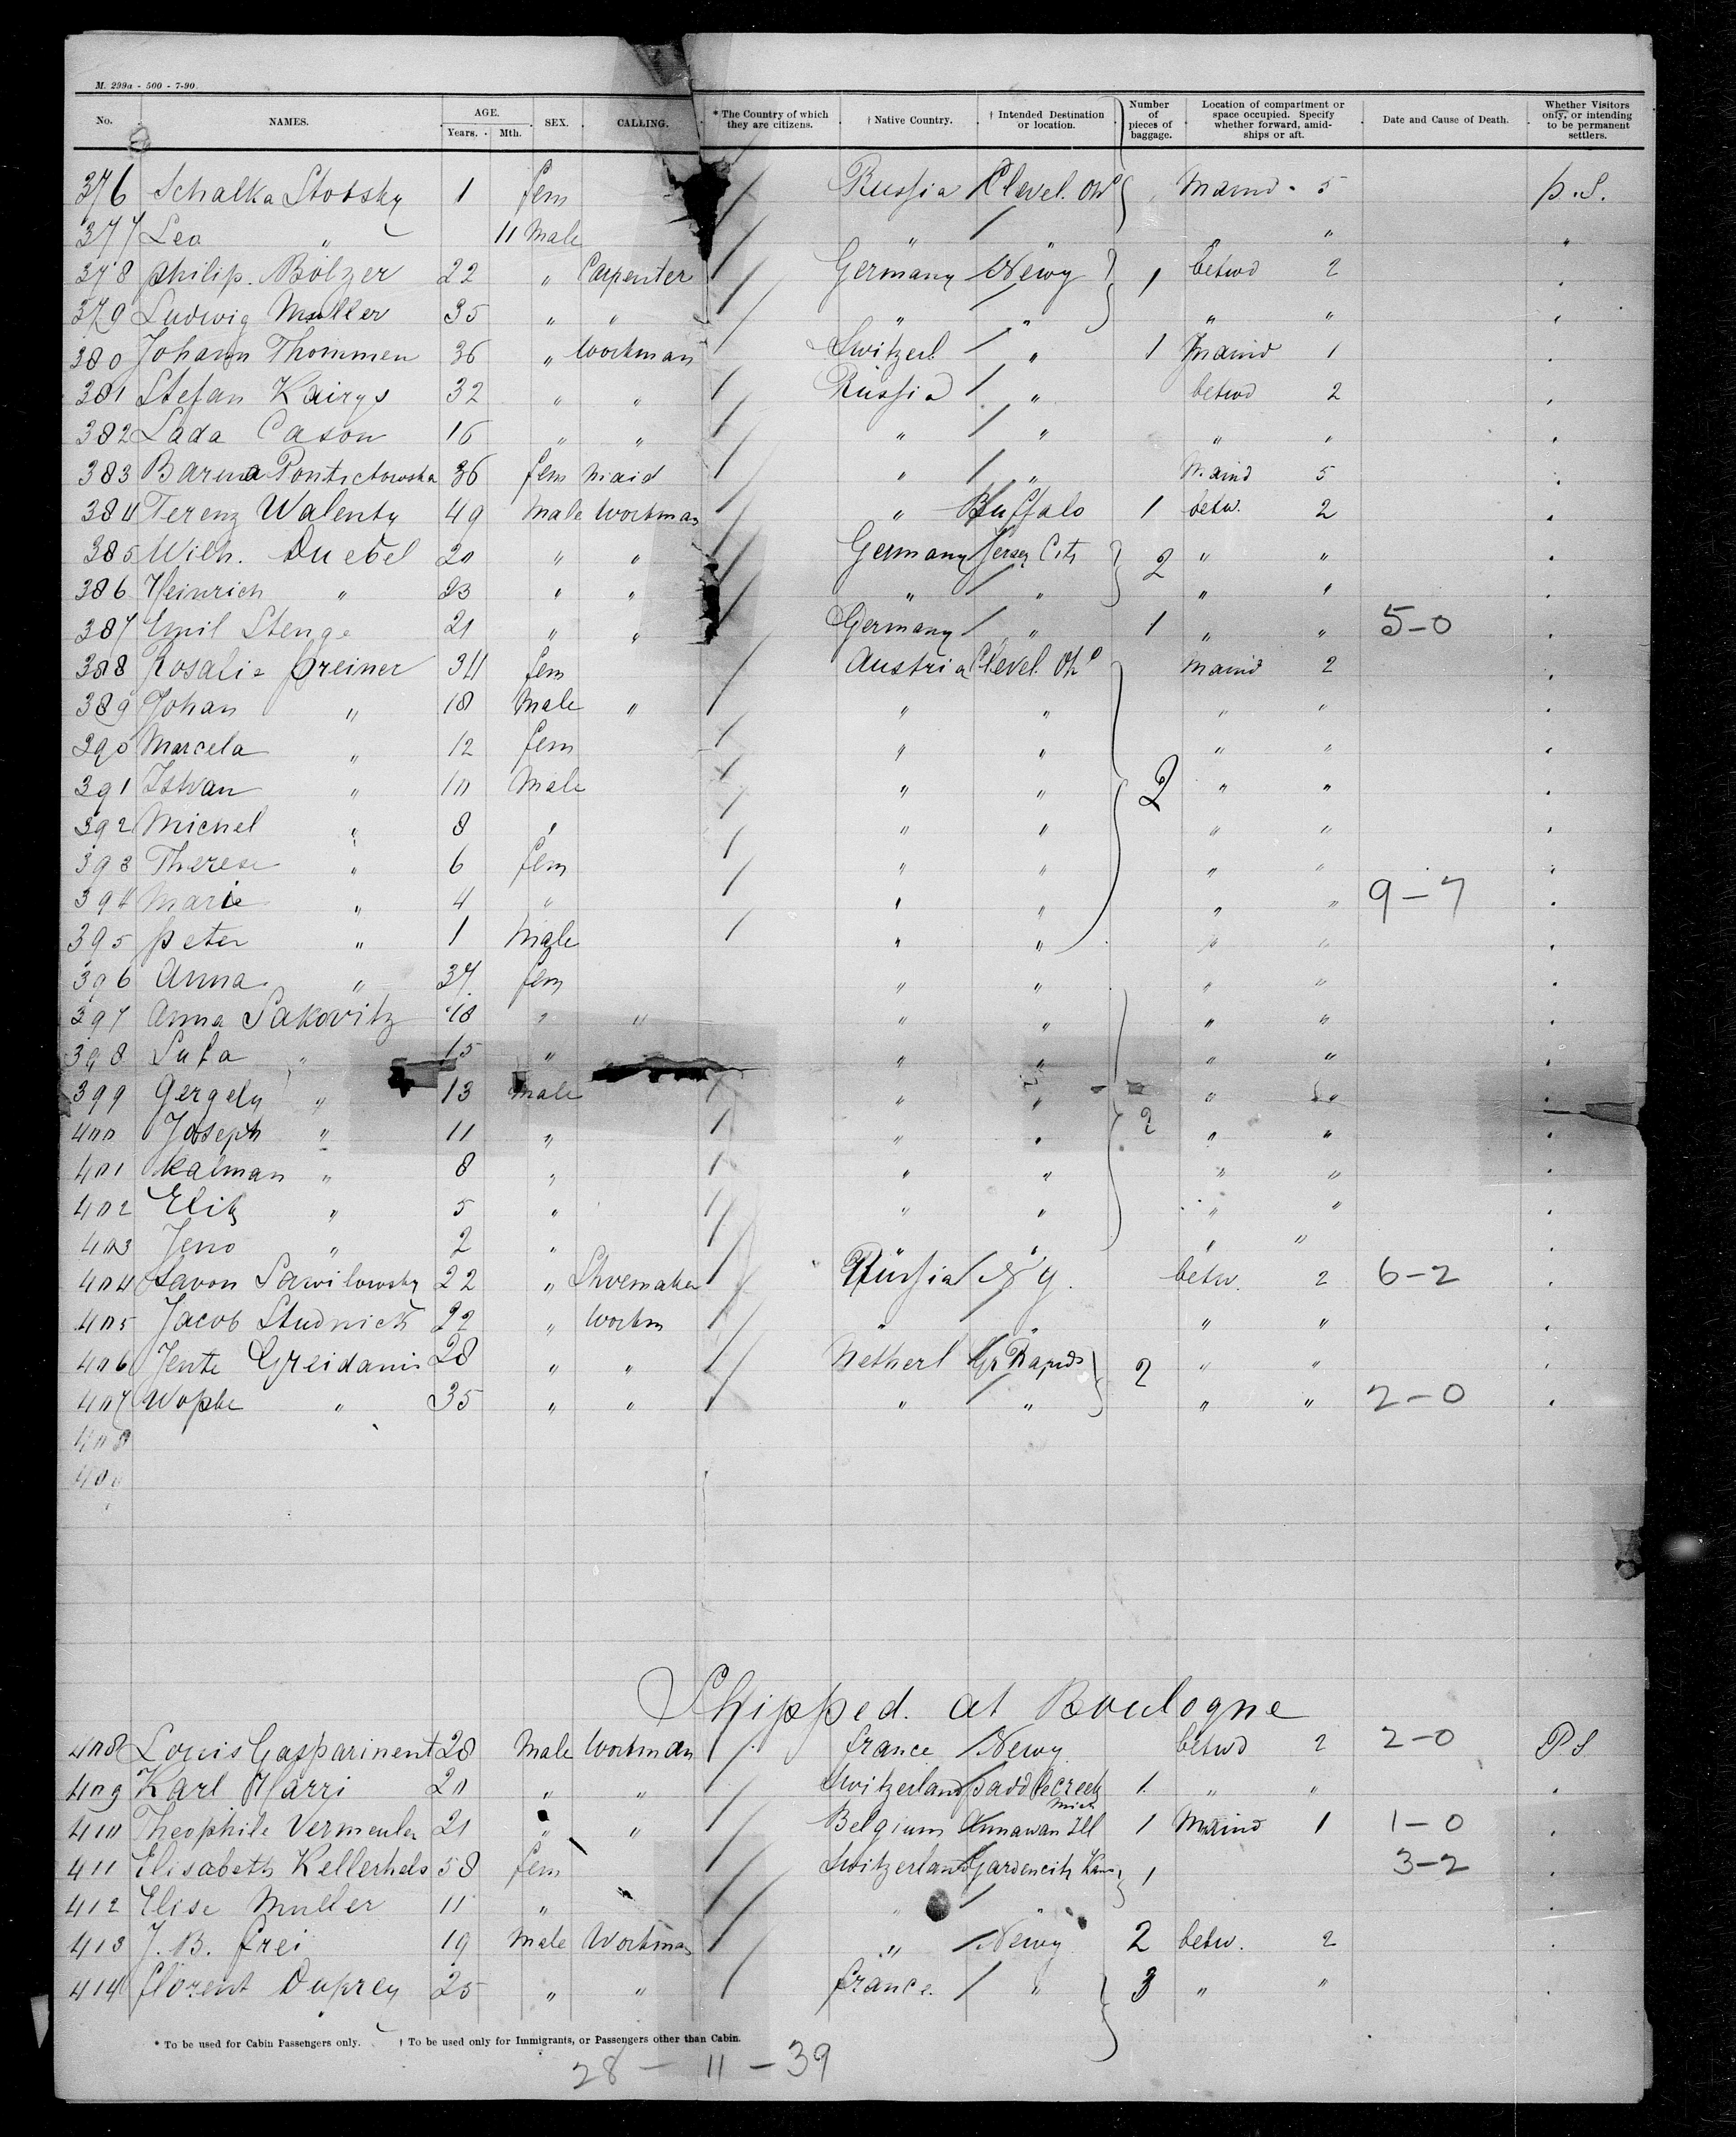 M. 299a - 500 - 7-90.
No. NAMES. AGE. Years. Mth. SEX. CALLING. * The Country of which they are citizens. † Native Country. † Intended Destination or location. Number of pieces of baggage. Location of compartment or space occupied. Specify whether forward, amidships or aft. Date and Cause of Death. Whether Visitors only, or intending to be permanent settlers.
376 Schalka Stotsky 1 fem / Russia Clevel. Oho 5 p.S.
377 Leo " 11 Male / " / " "
378 Philip. Bolzer 22 " Carpenter / Germany Newy 1 betwd 2 "
379 Ludwig Muller 35 " " / " / " " " "
380 Johann Thommen 36 " Workman / Switzerl. / " 1 1 "
381 Stefan Kairys 32 " " / Russia / " betwd 2 "
382 Lada Cason 16 " " / " / " " " "
383 36 fem maid / " / " 5 "
384 Ferenz Walenty 49 Male Workman / " Buffalo 1 betw. 2 "
385 Wilh. Duebel 20 " " / Germany Jersey City 2 " " "
386 Heinrich " 23 " " / " / " " " "
387 Emil Stenge 21 " " / Germany / " 1 " " 5-0 "
388 Rosalie Greiner 34 fem / Austria Clevel. Oho 2 "
389 Johan " 18 Male " / " " " " "
390 Marcela " 12 fem / " " " " "
391 Istvan " 10 Male / " " 2 " " "
392 Michel " 8 " / " " " " "
393 Therese " 6 fem / " " " " "
394 Marie " 4 " / " " " " 9-7 "
395 Peter " 1 Male / " " " " "
396 Anna " 37 fem " " " " "
397 Anna Sakovitz 18 " " " " " " "
398 " 15 " " " " " "
399 Gergely " 13 male / " " " " "
400 Joseph " 11 " / " " 2 " " "
401 Kalman " 8 " / " " " " "
402 " 5 " / " " " " "
403 Jeno " 2 " / " " " " "
404 Savon Sawilowsky 22 " Shoemaker / Russia N y. betw. 2 6-2 "
405 Jacob Studnick 22 " Workm / " / " " " "
406 Jente Greidanus 28 " " / Netherl Gr Rapids 2 " " "
407 Wopke " 35 " " / " / " " " 2-0 "
408
409
Shipped. at Boulogne
408 Louis Gasparinent 28 Male Workman / France / Newy betwd 2 2-0 P S
409 Karl Harri 20 " " / Switzerland 1 " " "
Mich
410 Theophile Vermeulen 21 " " / Belgium Annawan Ill 1 1 1-0 "
411 Elisabeth Kellerhals 58 fem / Switzerland Gardencity Kans 1 3-2 "
412 Elise Muller 11 " / " / " "
413 J. B. Frei 19 Male Workman / " / Newy 2 betw. 2 "
414 Florent Duprey 25 " " / France. / " 3 " " "
* To be used for Cabin Passengers only. † To be used only for Immigrants, or Passengers other than Cabin.
28 - 11 - 39